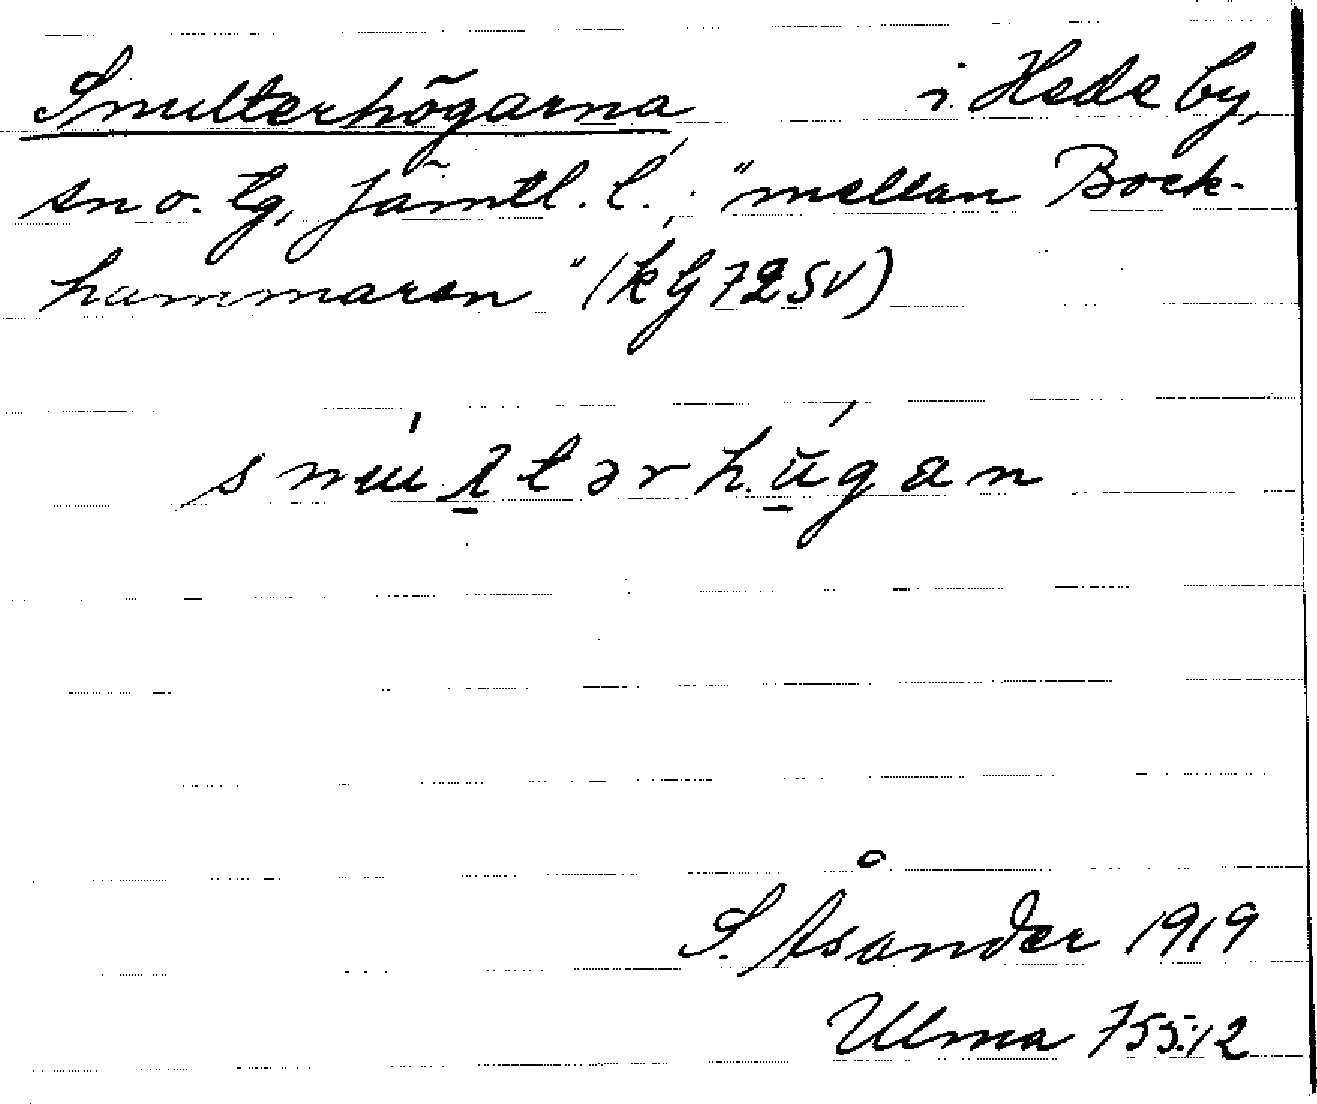 Smulterhögarna, i Hede by,
sn o. tg, Jämtl. l.; "mellan Bock-
hammaren" (kbl 72 SV)
S. Åsander 1919
Ulma 755:12